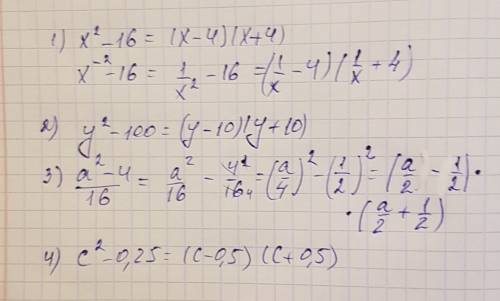 1) x² - 16 = (x-4)(x+4)
x⁻² - 16 = 1/x² - 16 = (1/x - 4)(1/x + 4)
2) y² - 100 = (y-10)(y+10)
3) (a² - 4)/16 = a²/16 - 4¹/16₄ = (a/4)² - (1/2)² = (a/2 - 1/2)·
·(a/2 + 1/2)
4) c² - 0,25 = (c-0,5)(c+0,5)